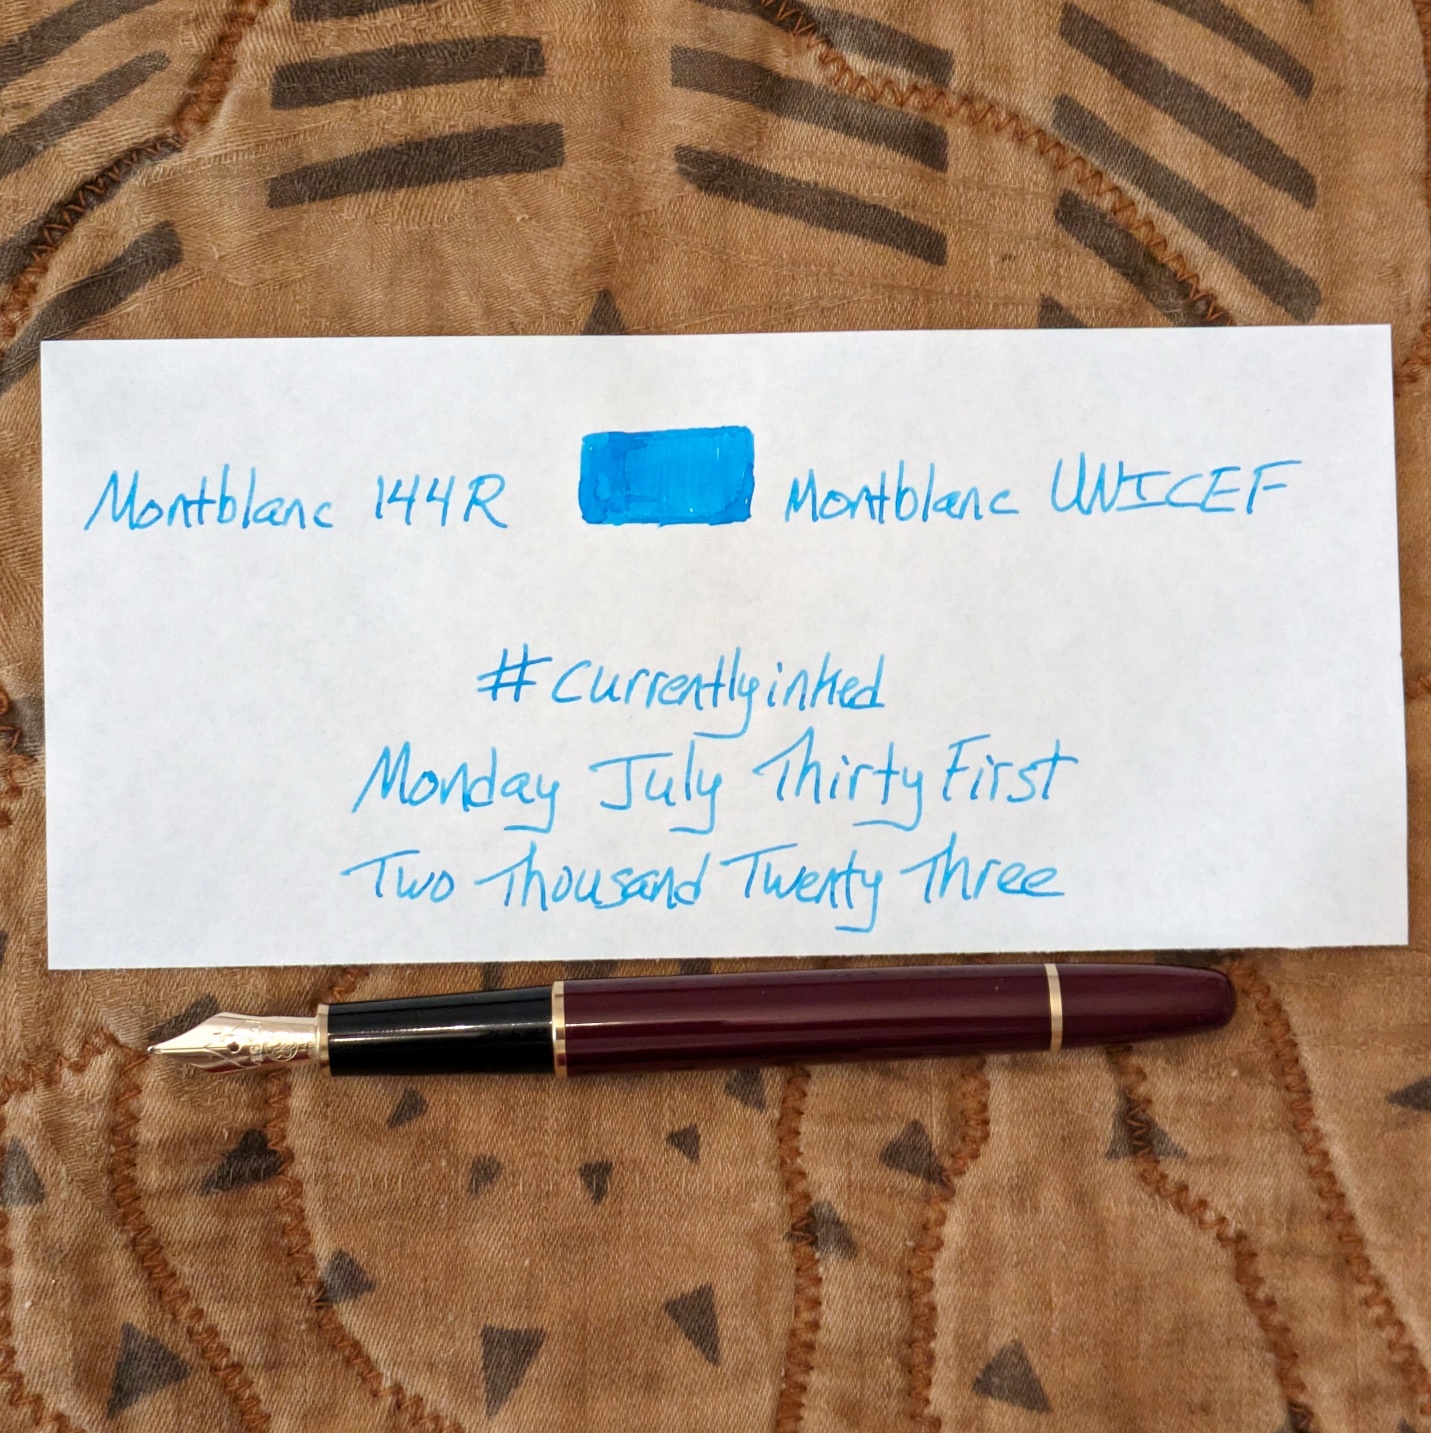 Montblanc 144R Montblanc UNICEF
#currentlyinked
Monday July Thirty First
Two Thousand Twenty Three